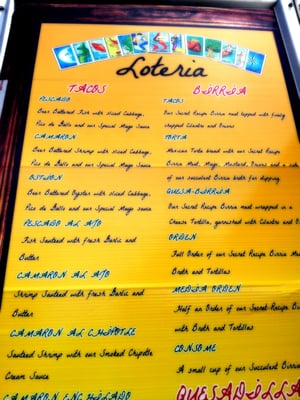 Loteria
TACOS
PESCADO
Beer Battered Fish with sliced Cabbage,
Pico de Gallo and our Special Mayo Sauce
CAMARON
Beer Battered Shrimp with sliced Cabbage,
Pico de Gallo and our Special Mayo Sauce
OSTION
Beer Battered Oyster with sliced Cabbage,
Pico de Gallo and our Special Mayo sauce
PESCADO AL AJO
Fish Sauteed with fresh Garlic and
Butter
CAMARON AL AJO
Shrimp Sauteed with fresh Garlic and
Butter
CAMARON AL CHIPOTLE
Sauteed Shrimp with our Smoked Chipotle
Cream Sauce
CAMARON ENCHILADO
BIRRIA
TACOS
Our Secret Recipe Birria meat topped with freshly
chopped Cilantro and Onions
TORTA
Mexican Torta bread with our Secret Recipe
Birria Meat, Mayo, Mustard, Onions and a side
of our succulent Birria broth for dipping
QUESA-BIRRIA
Our Secret Recipe Birria meat wrapped in a
Cheesy Tortilla, garnished with Cilantro and
ORDEN
Full Order of our Secret Recipe Birria
Broth and Tortillas
MEDIA ORDEN
Half an Order of our Secret Recipe
with Broth and Tortillas
CONSOME
A small cup of our Succulent Birria
QUESADILLA